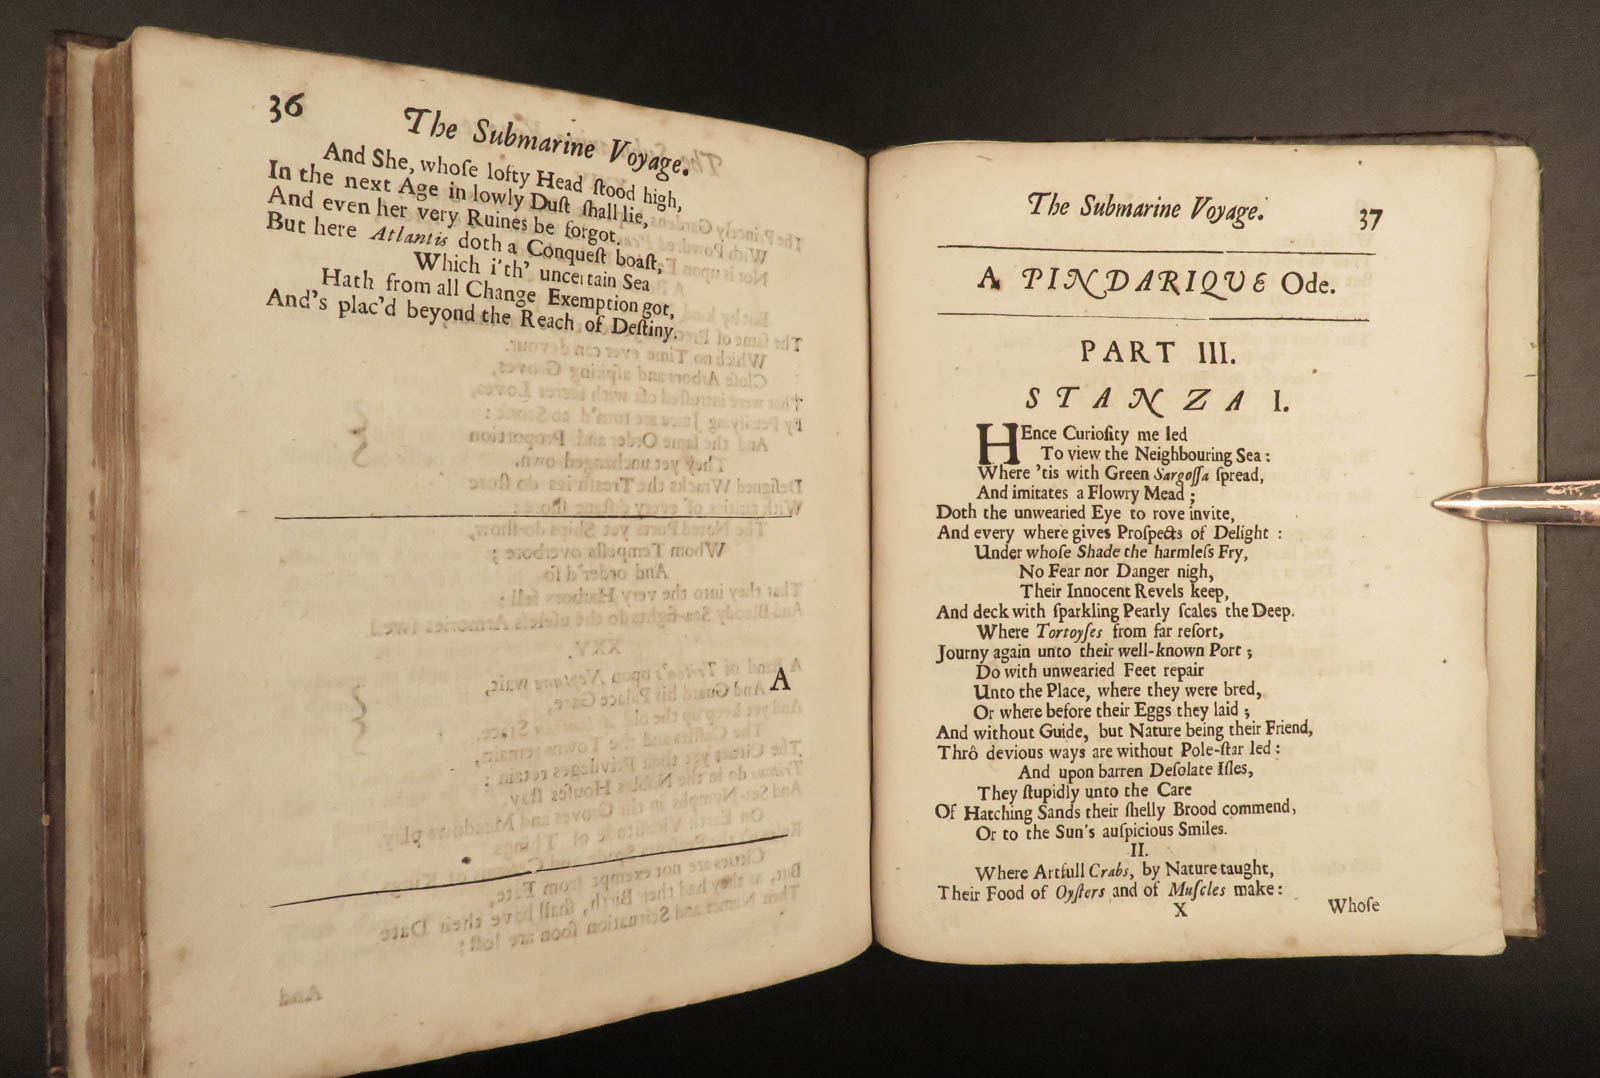 36
The Submarine Voyage.
And She, whoſe lofty Head ſtood high,
In the next Age in lowly Duſt ſhall lie,
And even her very Ruines be forgot.
But here Atlantis doth a Conqueſt boaſt,
Which i'th' uncertain Sea
Hath from all Change Exemption got,
And's plac'd beyond the Reach of Deſtiny.
A
The Submarine Voyage. 37
A PINDARIQUE Ode.
PART III.
STANZA I.
HEnce Curioſity me led
To view the Neighbouring Sea:
Where 'tis with Green Sargoſſa ſpread,
And imitates a Flowry Mead;
Doth the unwearied Eye to rove invite,
And every where gives Proſpects of Delight:
Under whoſe Shade the harmleſs Fry,
No Fear nor Danger nigh,
Their Innocent Revels keep,
And deck with ſparkling Pearly ſcales the Deep.
Where Tortoyſes from far reſort,
Journy again unto their well-known Port;
Do with unwearied Feet repair
Unto the Place, where they were bred,
Or where before their Eggs they laid;
And without Guide, but Nature being their Friend,
Thrô devious ways are without Pole-ſtar led:
And upon barren Deſolate Iſles,
They ſtupidly unto the Care
Of Hatching Sands their ſhelly Brood commend,
Or to the Sun's auſpicious Smiles.
II.
Where Artfull Crabs, by Nature taught,
Their Food of Oyſters and of Muſcles make:
X Whoſe